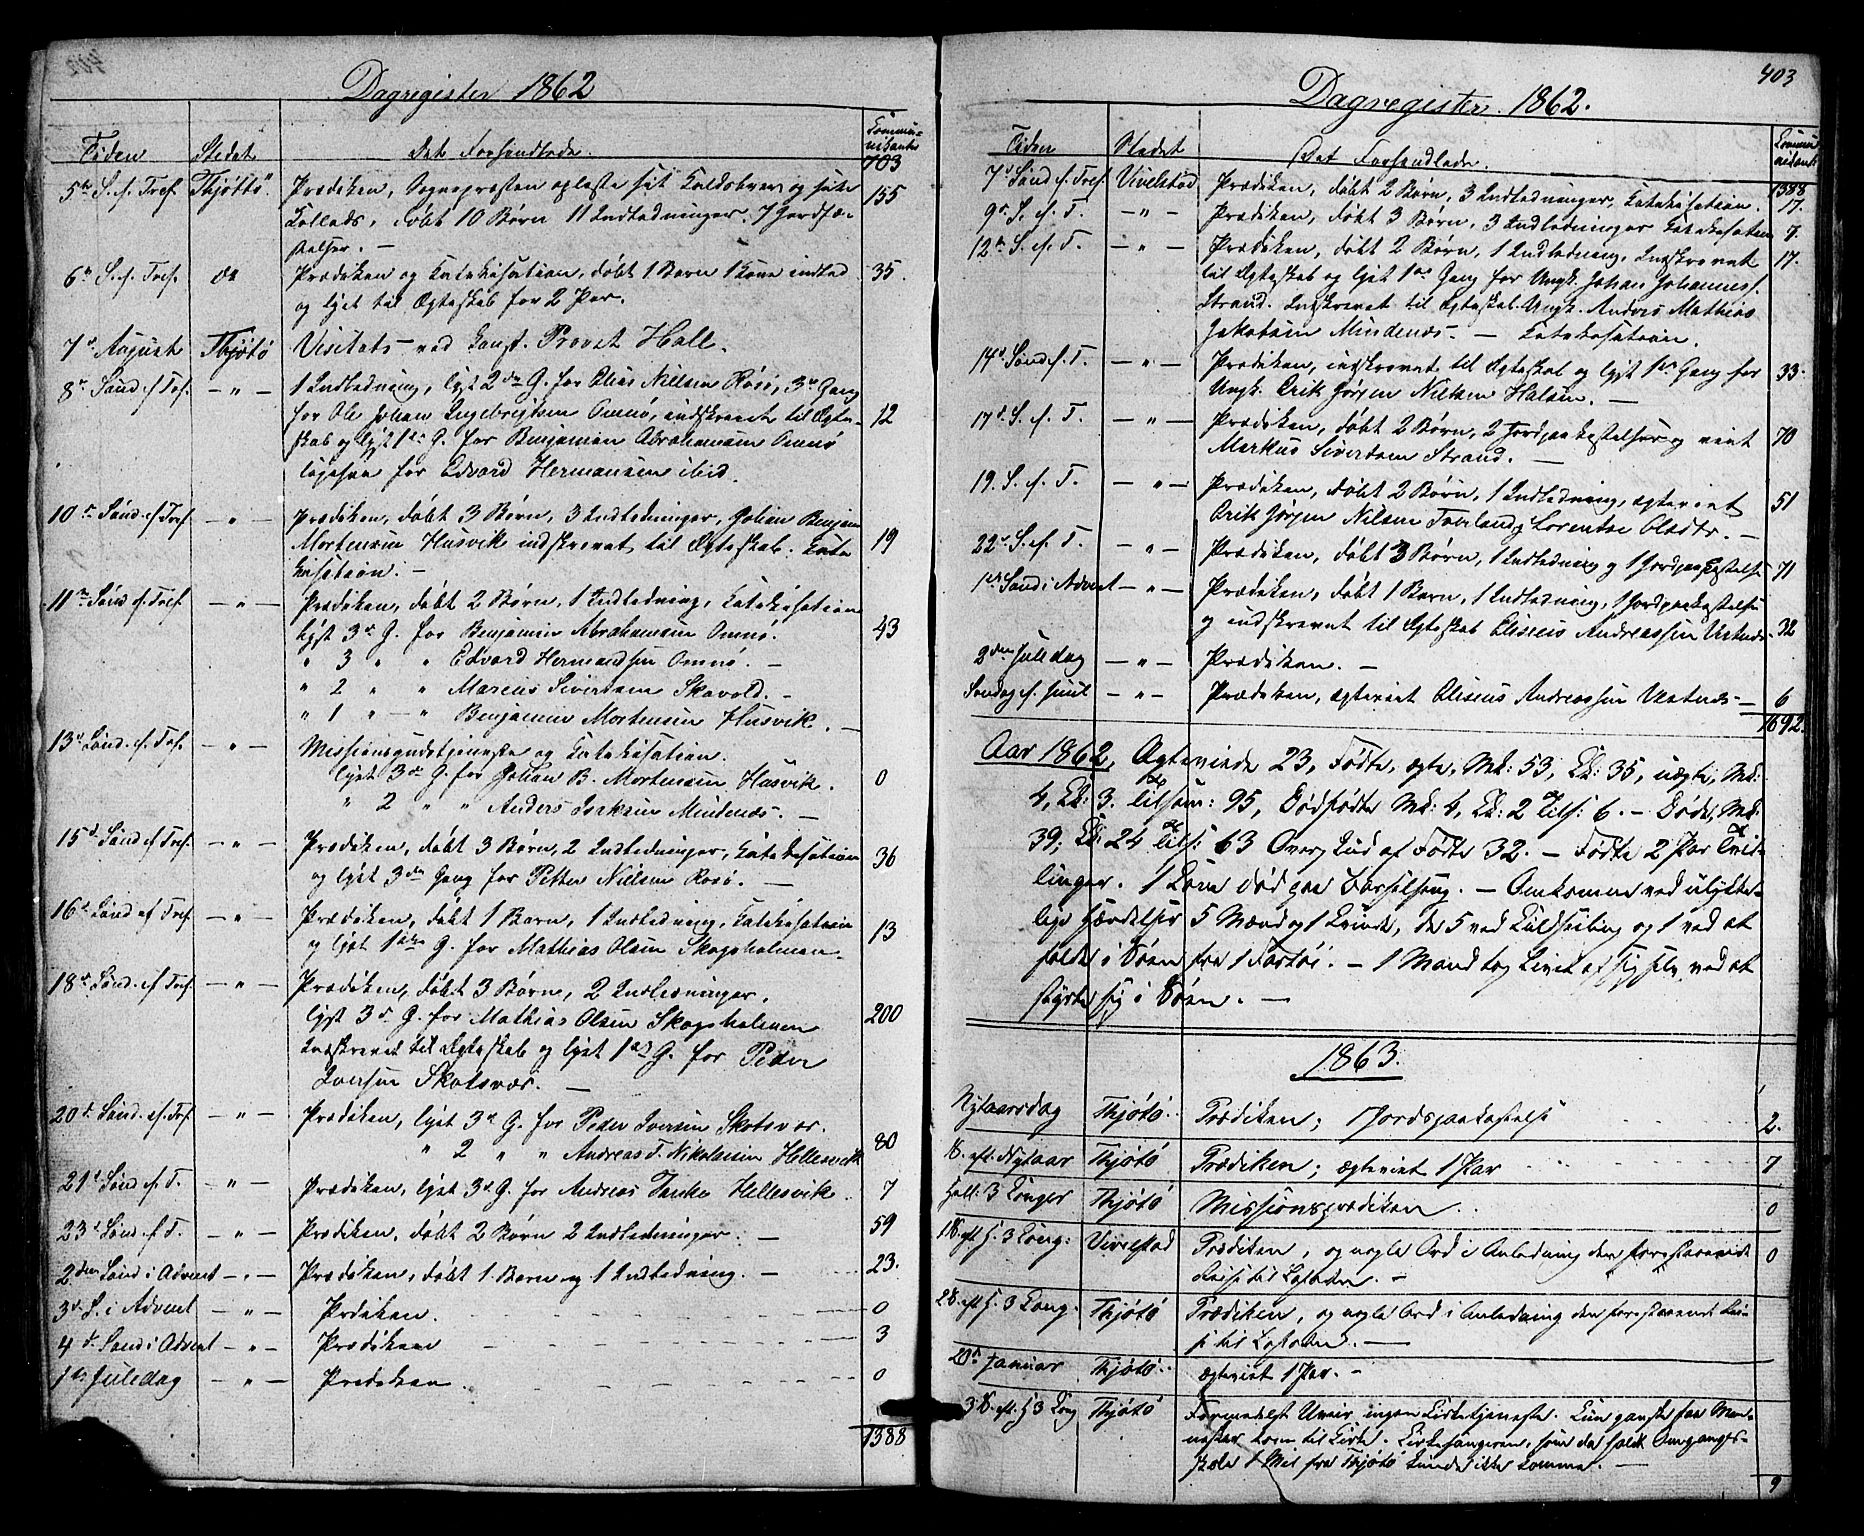 Dagregister 1862
Tiden Stedet Det Forhandlede. Commu-
nicanter
703
5te S. ef. Tref. Thjøttø Prædiken, Sognepræsten oplæste sit Kaldsbrev og sit 155
Kollats, døbt 10 Børn 11 Indledninger. 7 Jordfæ-
stelser. —
6te S. ef. Tref. do Prædiken og Katekisation, døbt 1 Barn 1 Kone indled 35.
og lyst til Ægteskab for 2 Par.
7de August Thjøtø Visitats ved Const. Provst Hall.
8de Sønd. ef Tref. — " — 1 Indledning, lyst 2den G. for Elias Nilsen Rosø, 3de Gang
for Ole Johan Ingebrigtsen Omnø, indskrevet til Ægte- 12
skab og lyst 1ste G. for Benjamin Abrahamsen Omnø
ligesaa for Edvard Hermansen ibid.
10de Sønd. ef Tref. — " — Prædiken, døbt 3 Børn, 3 Indledninger, Johan Benjam
Mortensen Husvik indskrevet til Ægteskab. Kate 19
kisation. —
11te Sønd ef. Tref. — " — Prædiken, døbt 2 Børn, 1 Indledning, Katekisation
Lyst 3de G. for Benjamin Abrahamsen Omnø. 43
" 3 " " Edvard Hermandsen Omnø. —
" 2 " " Marcus Siverdsen Skavold. —
" 1 " — " Benjamin Mortensen Husvik. —
13de Sønd. ef. Tref. — " — Missionsgudstjeneste og Katekisation.
lyst 3de G. for Johan B. Mortensen Husvik. 0
" 2 " " Anders Jacksen Mindenæs. —
15de Sønd ef Tref. — " — Prædiken, døbt 3 Børn, 2 Indledninger, Katekisation 36
og lyst 3den Gang for Petter Nielsen Rosø. —
16de Sønd ef Tref. — " — Prædiken, døbt 1 Barn, 1 Indledning, Katekisation 13
og lyst 1ste G. for Mathias Olsen Skogsholmen
18de Sønd. ef Tref. — " — Prædiken, døbt 3 Børn, 2 Indledninger.
lyst 3de G. for Mathias Olsen Skogsholmen 200
Indskrevet til Ægteskab og lyst 1ste G. for Peder
Iversen Skotsvær. —
20de Sønd. ef. Tref. — " — Prædiken, lyst 3de G. for Peder Iversen Skotsvær.
" 2 " " Andreas T. Nikolaisen Hellesvik 80
21de Sønd ef. T. — " — Prædiken, lyst 3de G. for Andreas Hellesvik. 7
23de Sønd. ef T. — " — Prædiken, døbt 2 Børn 2 Indledninger. — 59
2den Sønd i Advent — " — Prædiken, døbt 1 Barn og 1 Indledning. — 23.
3de S. i Advent — " — Prædiken. 0
4de Sønd i Advent — " — Prædiken 3
1ste Juledag — " — Prædiken. 0
1388
403
Dagregister. 1862.
Tiden Stedet Det Forhandlede. Commu
nicant.
1388
7de Sønd ef. Tref. Vivelstad Prædiken, døbt 2 Børn, 3 Indledninger, Katekisation. 17.
9de S. ef. T. — " — Prædiken, døbt 3 Børn, 3 Indledninger Katekisation 7.
12te S. ef. T. — " — Prædiken, døbt 2 Børn, 1 Indledning, Indskrevet 17.
til Ægteskab og lyst 1ste Gang for Ungk. Johan Johannes.
Strand. Indskrevet til Ægteskab Ungk. Anders Mathias
Jakobsen Mindenæs. — Katekisation.
14de Sønd ef. T. — " — Prædiken, indskrevet til Ægteskab og lyst 1ste Gang for 33.
Ungk. Erik Jørgen Nilsen Halsen. —
17de S. ef. T. — " — Prædiken, døbt 2 Børn, 2 Jordpaakastelser og viet 70
Markus Siverdsen Strand. —
19. S. ef. T. — " — Prædiken, døbt 2 Børn, 1 Indledning, ægteviet 51
Erik Jørgen Nilsen Tverland og Lorentse Olsdtr. —
22de S. ef. T. — " — Prædiken, døbt 3 Børn, 1 Indledning og 1 Jordpaakastelse 71
1ste Sønd i Advent — " — Prædiken, døbt 1 Barn, 1 Indledning, 1 Jordpaakastelse
og indskrevet til Ægteskab Eliseus Andreassen Vestnes. 32
2den Juledag — " — Prædiken. —
Søndag ef. Juul — " — Prædiken, ægteviet Eliseus Andreassen Vestnes — 6
1692.
Aar 1862, Ægteviede 23, Fødte, ægte, Mk: 53, Qk: 35, uægte, Mk:
4, Qk: 3. Tilsam: 95, Dødfødte Mk: 4, Qk: 2 Tils: 6. — Døde, Mk:
39, Qk: 24 Tils: 63 Overskud af Fødte 32. — Fødte 2 Par Tvil-
linger. 1 Kone død paa Barselseng. — Omkomne ved ulykke-
lige Hændelser 5 Mænd og 1 Qvinde, de 5 ved Kuldseiling og 1 ved at
falde i Søen fra 1 Fartøi. — 1 Mand tog Livet af sig selv ved at
styrte sig i Søen. —
1863.
Nytaarsdag Thjøtø. Prædiken; 1 Jordspaakastelse 2.
S. eft. Nytaar Thjøtø Prædiken; ægteviet 1 Par 7
Hell: 3 Konger Thjøtø Missionsprædiken. 0
1 S. eft H. 3 Kong: Vivelstad Prædiken, og nogle Ord i Anledning den forestaaende 0
Reise til Lofoten. —
2 S. eft H. 3 Kong. Thjøtø Prædiken, og nogle Ord i Anledning den forestaaende Rei-
se til Lofoten. —
20de Januar Thjøtø. ægteviet 1 Par. —
3 S. eft. H 3 Kong Thjøtø Formedelst Uveir ingen Kirketjeneste. Kun ganske faa Men-
nesker kom til Kirke. Kirkesangeren, som da holdt Omgangs-
skole 1 Mil fra Thjøtø kunde ikke komme. —
9